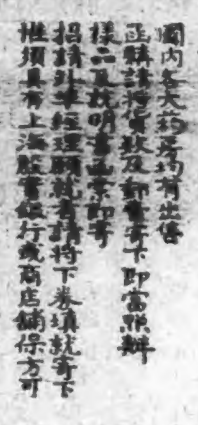 國內各大藥房均有出售
函購請將貨款及郵費寄下即當照辦
樣品及說明書函索即寄
招請外埠經理願就者請將下券填就寄下
惟須具有上海殷實銀行或商店鋪保方可